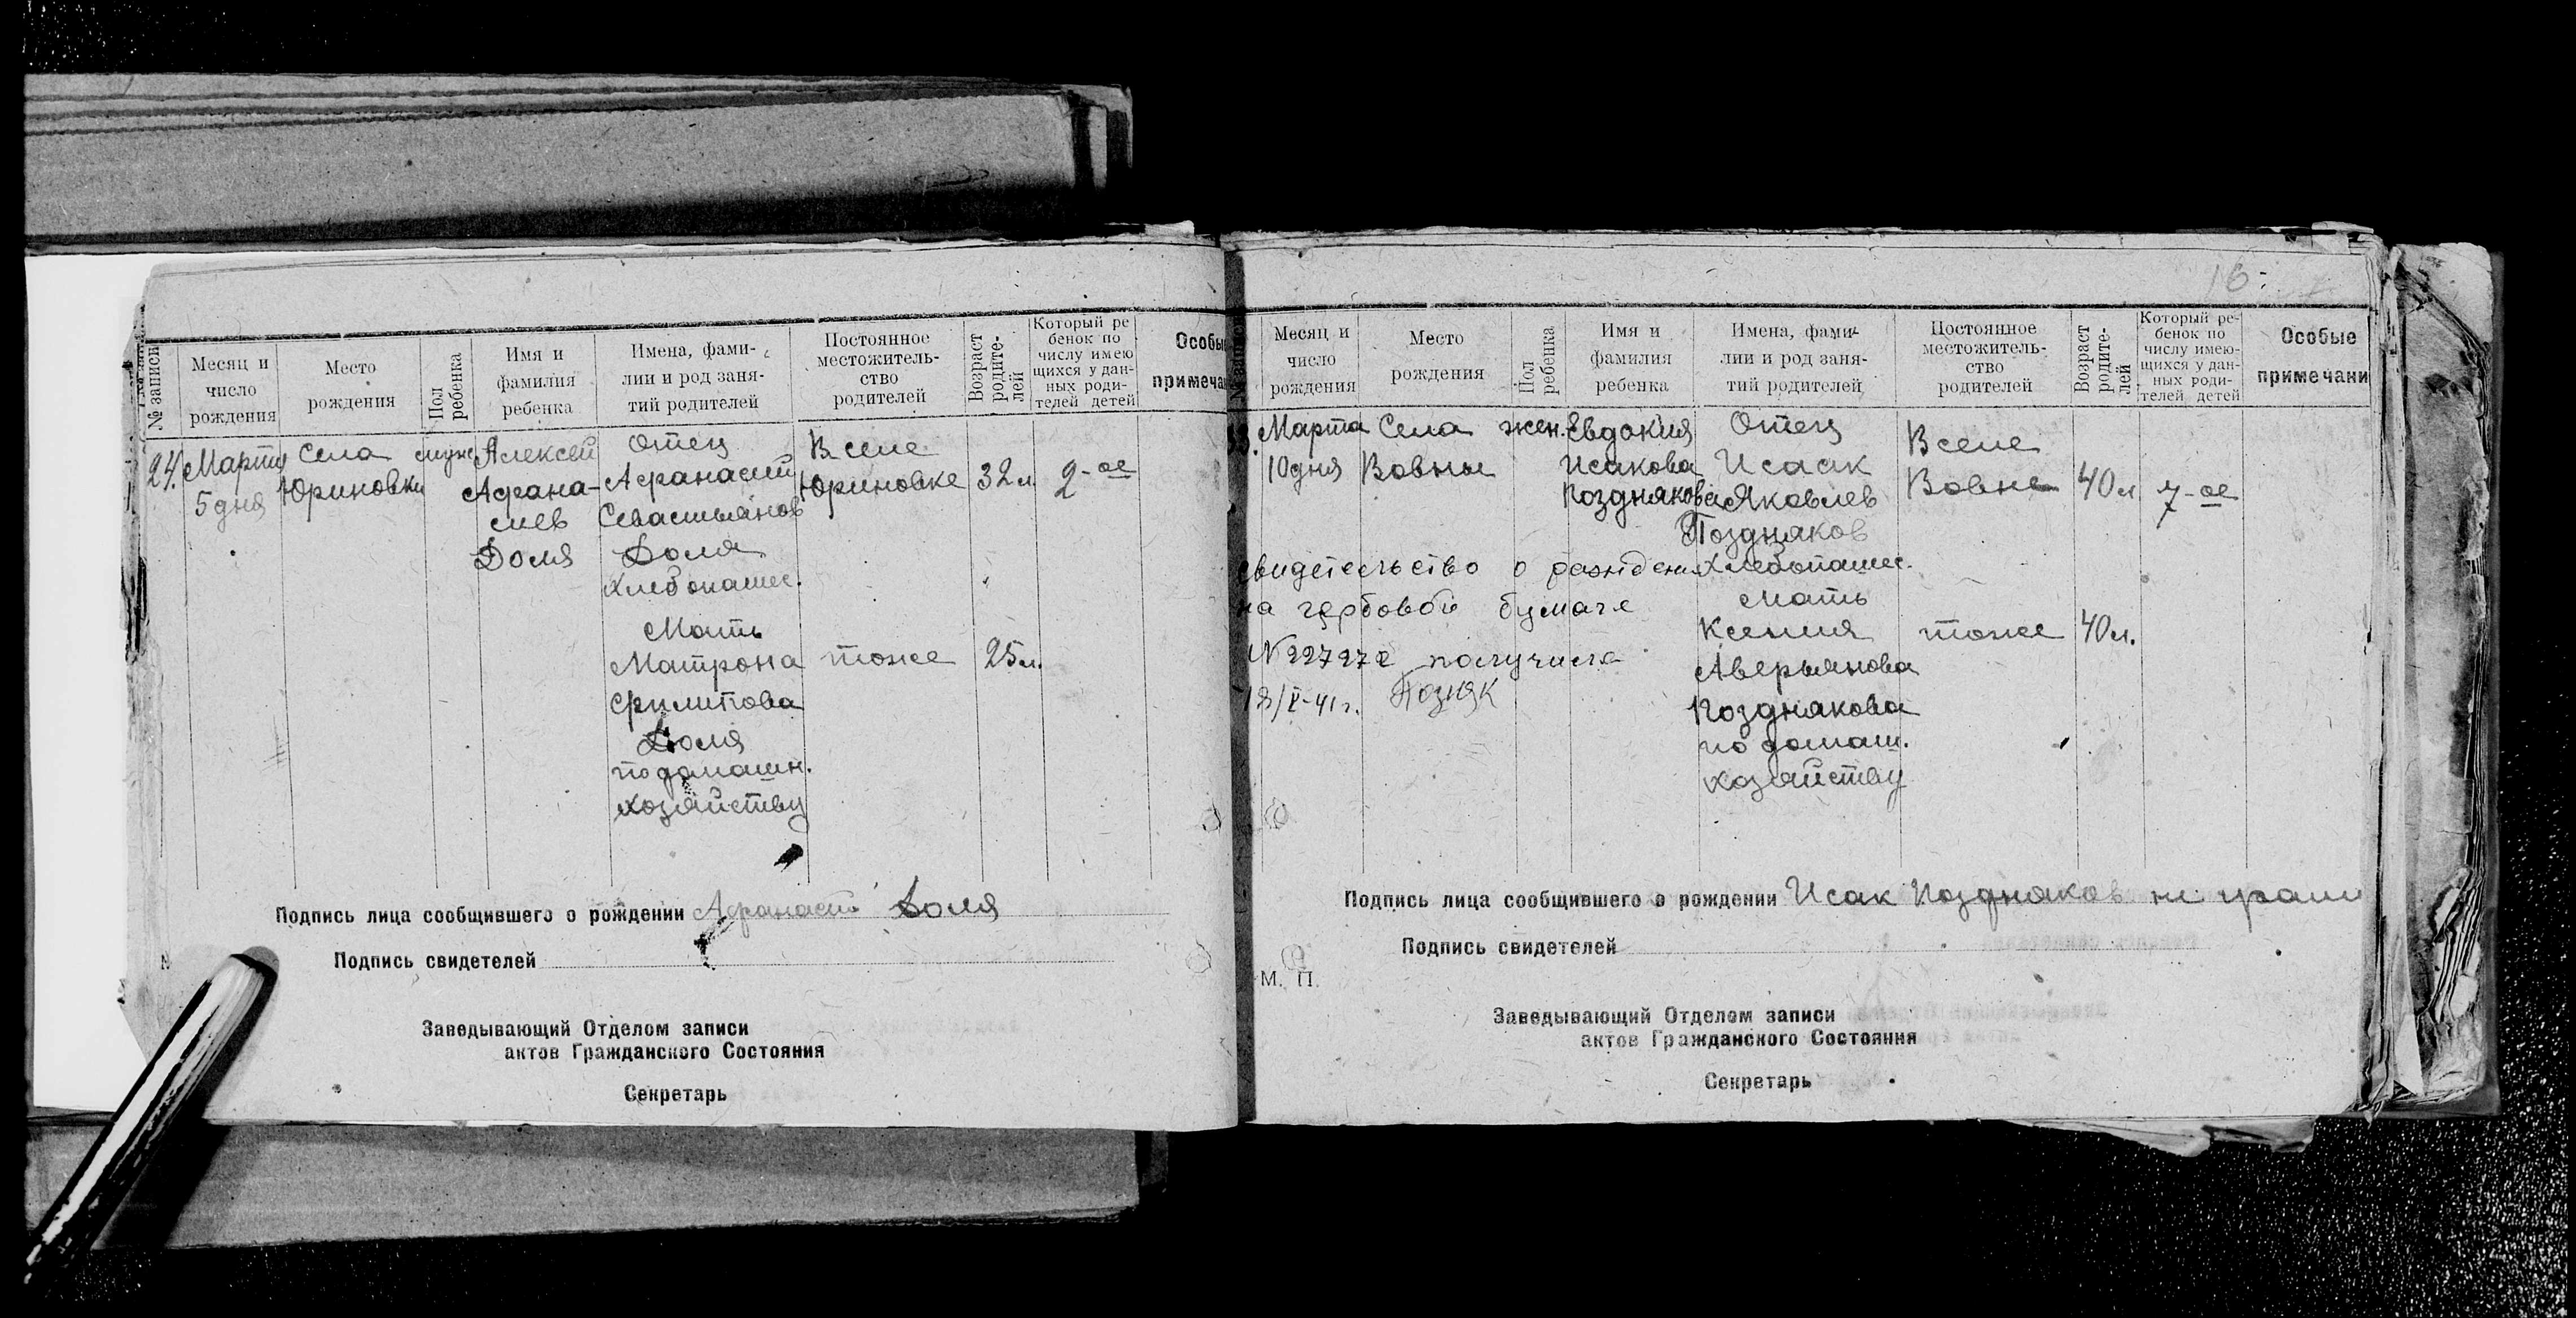 № записи
Месяц и число рождения
Место рождения
Пол ребенка
Имя и фамилия ребенка
Имена, фамилии и род занятий родителей
Постоянное местожительство родителей
Возраст родителей
Который ребенок по числу имеющихся у данных родителей детей
Особые
примеча
24. Марта
5 дня
Села
Юриновки
муж.
Алексей
Афана-
сиев
Доля
Отец
Афанасий
Севастьянов
Доля
Хлебопашес.
Мать
Матрона
Филипова
Доля
по домашн.
хозяйству
В селе
Юриновке
тоже
32 л
25 л.
2-ое
Подпись лица сообщившего о рождении Афанасий Доля
Подпись свидетелей
Заведывающий Отделом записи
актов Гражданского Состояния
Секретарь
16
Месяц и
число
рождения
Место
рождения
Пол
ребенка
Имя и
фамилия
ребенка
Имена, фами-
лии и род заня-
тий родителей
Постоянное
местожитель-
ство
родителей
Возраст
родите-
лей
Который ре-
бенок по
числу имею-
щихся у дан-
ных роди-
телей детей
Особые
примечани
Марта
10 дня
Села
Вовны
жен.
Евдокия
Исакова
Позднякова
Отец
Исаак
Яковлев
Поздняков
Хлебопашес.
Мать
Ксения
Аверьянова
Позднякова
по домаш.
хозяйству
В селе
Вовне
тоже
40 л
40 л.
7-ое
свидетельство о рождении
на гербовой бумаге
№ 227272 получила
18/V-41 г. Позняк
Подпись лица сообщившего о рождении Исак Поздняков не грам
Подпись свидетелей
М. П.
Заведывающий Отделом записи
актов Гражданского Состояния
Секретарь